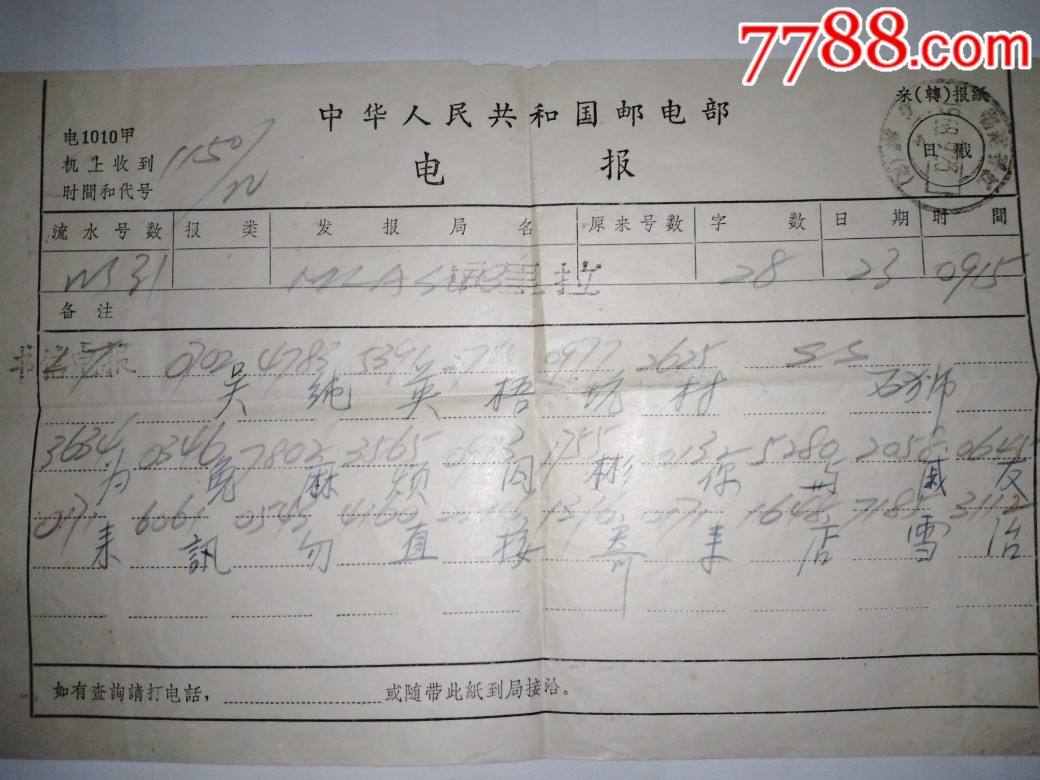 7788.com
来(轉)报紙
中华人民共和国邮电部
电1010甲
机上收到
时間和代号
1150/22
电报
日戳
流水号数 报类 发报局名 原来号数 字数 日期 时間
31 28 23 0915
备注
0702 4783 5391 0977 2625
吴纯英梧坑村 石狮
3634 0346 7802 3565 1755 0132 5280 2058 0645
为免麻烦同彬你与戚友
6061 0543 7185 3112
来訊勿直接寄来店雪冶
如有查詢請打电話, 或随带此紙到局接洽。